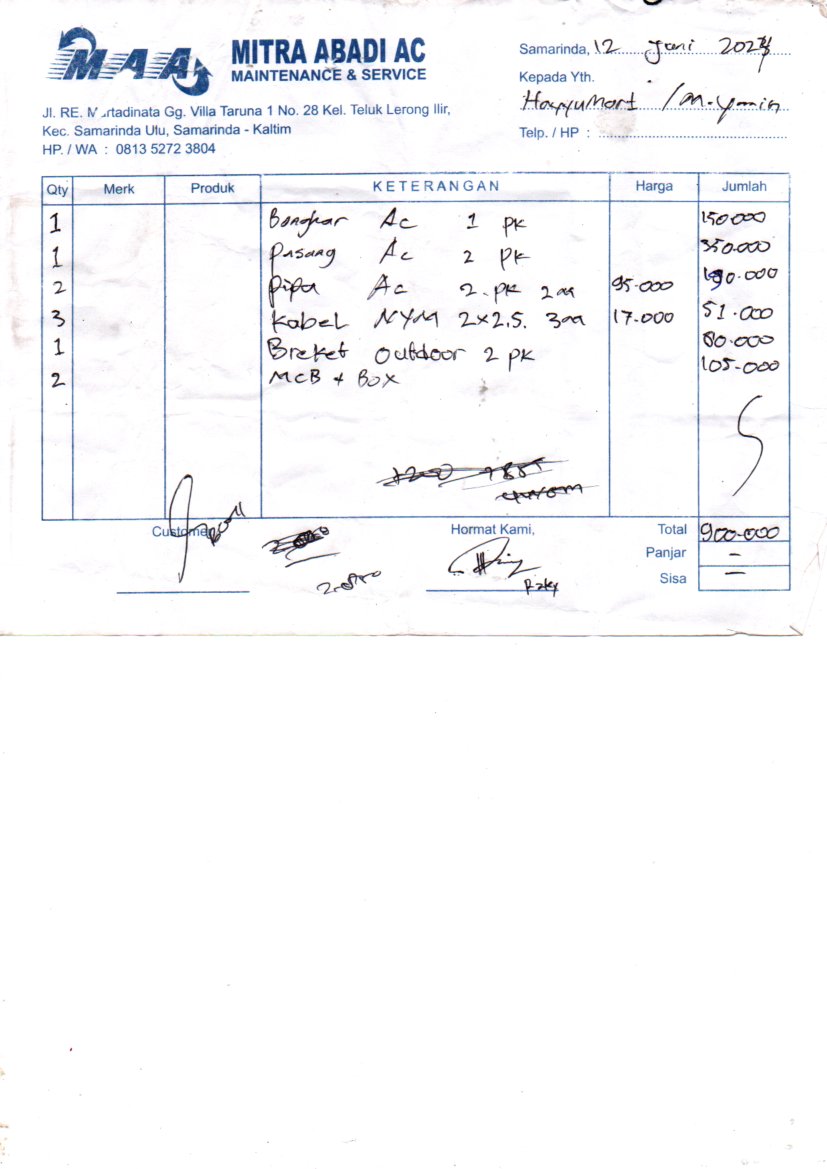 MAA MITRA ABADI AC
MAINTENANCE & SERVICE
Jl. RE. Martadinata Gg. Villa Taruna 1 No. 28 Kel. Teluk Lerong Ilir,
Kec. Samarinda Ulu, Samarinda - Kaltim
HP. / WA : 0813 5272 3804
Samarinda, 12 Juni 2024
Kepada Yth.
Hayyumart / M. Yamin
Telp. / HP :
Qty Merk Produk KETERANGAN Harga Jumlah
1 Bongkar Ac 1 pk 150.000
1 Pasang Ac 2 PK 350.000
2 Pipa Ac 2. PK 2m 95.000 190.000
3 Kabel NYM 2x2.5. 3m 17.000 51.000
1 Breket Outdoor 2 PK 80.000
2 MCB + BOX 105.000
Customer Hormat Kami, Total 900.000
Panjar -
Sisa -
Rizky